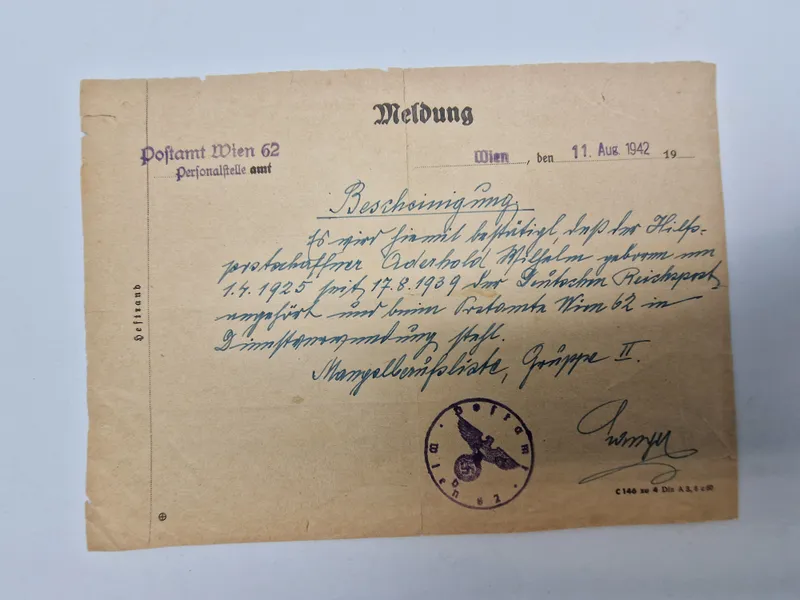 Meldung
Postamt Wien 62
Personalstelle amt
Wien, den 11. Aug. 1942 19
Bescheinigung.
Es wird hiemit bestätigt, daß der Hilfs-
postschaffner Aderhold Wilhelm geboren am
1.4.1925 seit 17.8.1939 der Deutschen Reichspost
angehört und beim Postamte Wien 62 in
Dienstverwendung steht.
Mangelberufsliste, Gruppe II.
Heftrand
Postamt
Wien 62
C 146 zu 4 Din A 5, 6 c 60